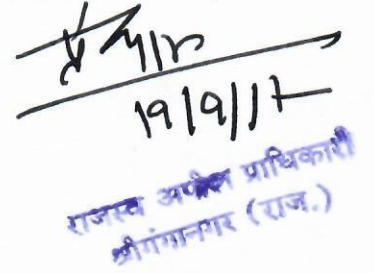 19/9/17
राजस्व अपील प्राधिकारी
श्रीगंगानगर (राज.)